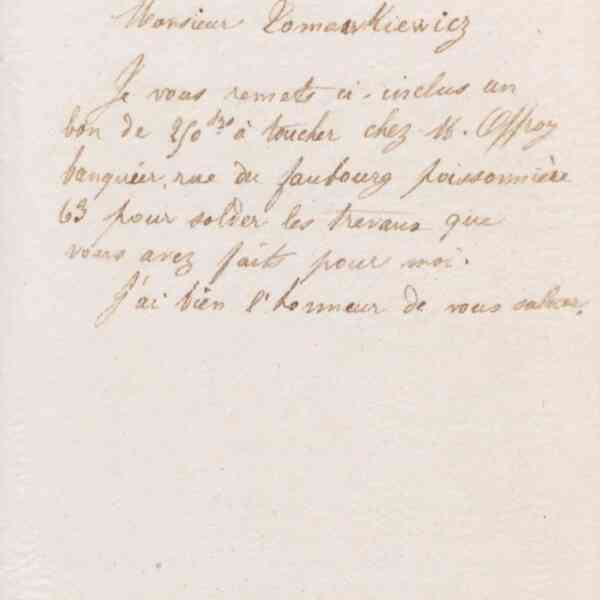 Monsieur Tomaszkiewicz
Je vous remets ci-inclus un
bon de 250 frs à toucher chez M. Offroy
banquier, rue du faubourg poissonnière
63 pour solder les travaux que
vous avez faits pour moi.
J'ai bien l'honneur de vous saluer.